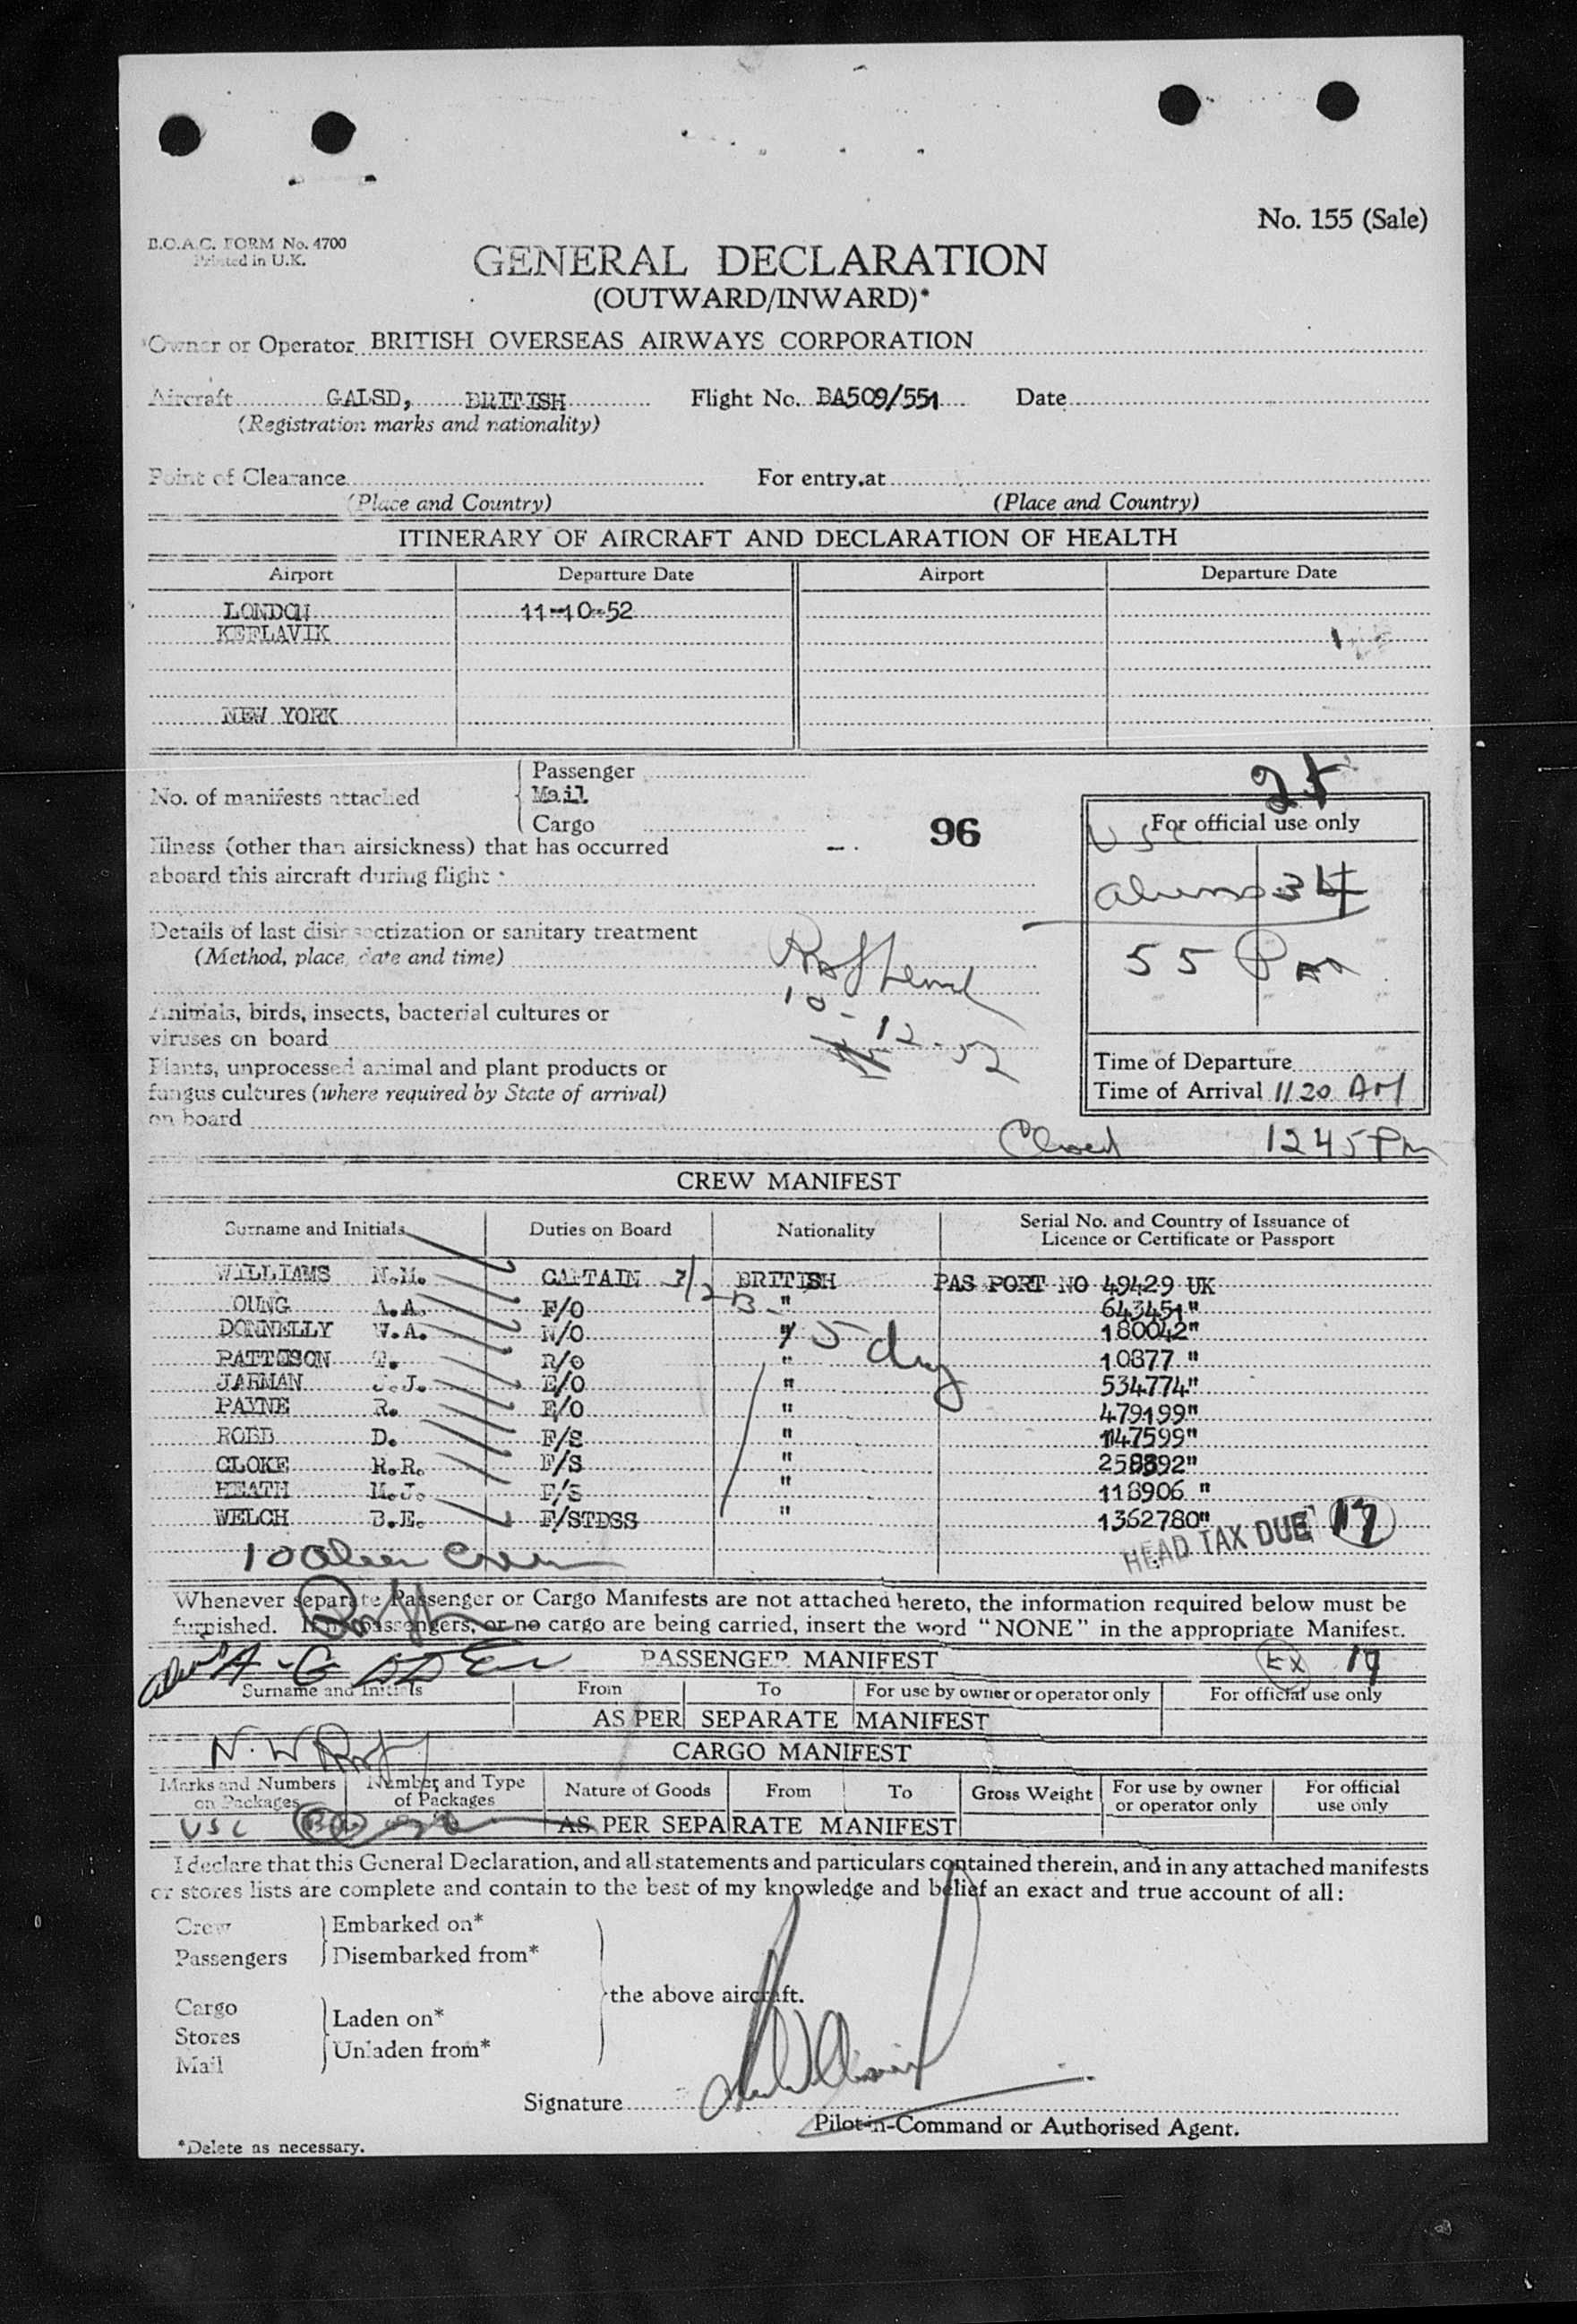 No. 155 (Sale)
B.O.A.C. FORM No. 4700
Printed in U.K.
GENERAL DECLARATION
(OUTWARD/INWARD)*
*Owner or Operator BRITISH OVERSEAS AIRWAYS CORPORATION
Aircraft GALSD, BRITISH Flight No. BA509/551 Date
(Registration marks and nationality)
Point of Clearance For entry at
(Place and Country) (Place and Country)
ITINERARY OF AIRCRAFT AND DECLARATION OF HEALTH
Airport Departure Date Airport Departure Date
LONDON 11-10-52
KEFLAVIK
NEW YORK
Passenger
No. of manifests attached Mail
Cargo
96
For official use only
USC
Illness (other than airsickness) that has occurred
aboard this aircraft during flight
aliens 34
55
Details of last disinsectization or sanitary treatment
(Method, place, date and time)
10-12-52
Animals, birds, insects, bacterial cultures or
viruses on board
Plants, unprocessed animal and plant products or
fungus cultures (where required by State of arrival)
on board
Time of Departure
Time of Arrival 1120 AM
Closed 1245 Pm
CREW MANIFEST
Surname and Initials Duties on Board Nationality Serial No. and Country of Issuance of
Licence or Certificate or Passport
WILLIAMS N.M. CAPTAIN BRITISH PAS PORT NO 49429 UK
OUNG A.A. F/O " 643451"
DONNELLY W.A. N/O " 180042"
PATTISON T. R/O " 10877 "
JARMAN J.J. E/O " 534774"
PAYNE R. E/O " 479199"
ROBB D. F/S " 147599"
CLOKE R.R. F/S " 258892"
HEATH M.J. F/S " 118906 "
WELCH B.E. F/STDSS " 1362780"
5 day
10 Alien Crew
HEAD TAX DUE 17
Whenever separate Passenger or Cargo Manifests are not attached hereto, the information required below must be
furnished. If no passengers, or no cargo are being carried, insert the word "NONE" in the appropriate Manifest.
PASSENGER MANIFEST
EX 17
Surname and Initials From To For use by owner or operator only For official use only
AS PER SEPARATE MANIFEST
CARGO MANIFEST
Marks and Numbers on Packages Number and Type of Packages Nature of Goods From To Gross Weight For use by owner or operator only For official use only
USC
AS PER SEPARATE MANIFEST
I declare that this General Declaration, and all statements and particulars contained therein, and in any attached manifests
or stores lists are complete and contain to the best of my knowledge and belief an exact and true account of all:
Crew Embarked on*
Passengers Disembarked from*
the above aircraft.
Cargo
Stores Laden on*
Mail Unladen from*
Signature
Pilot-in-Command or Authorised Agent.
*Delete as necessary.